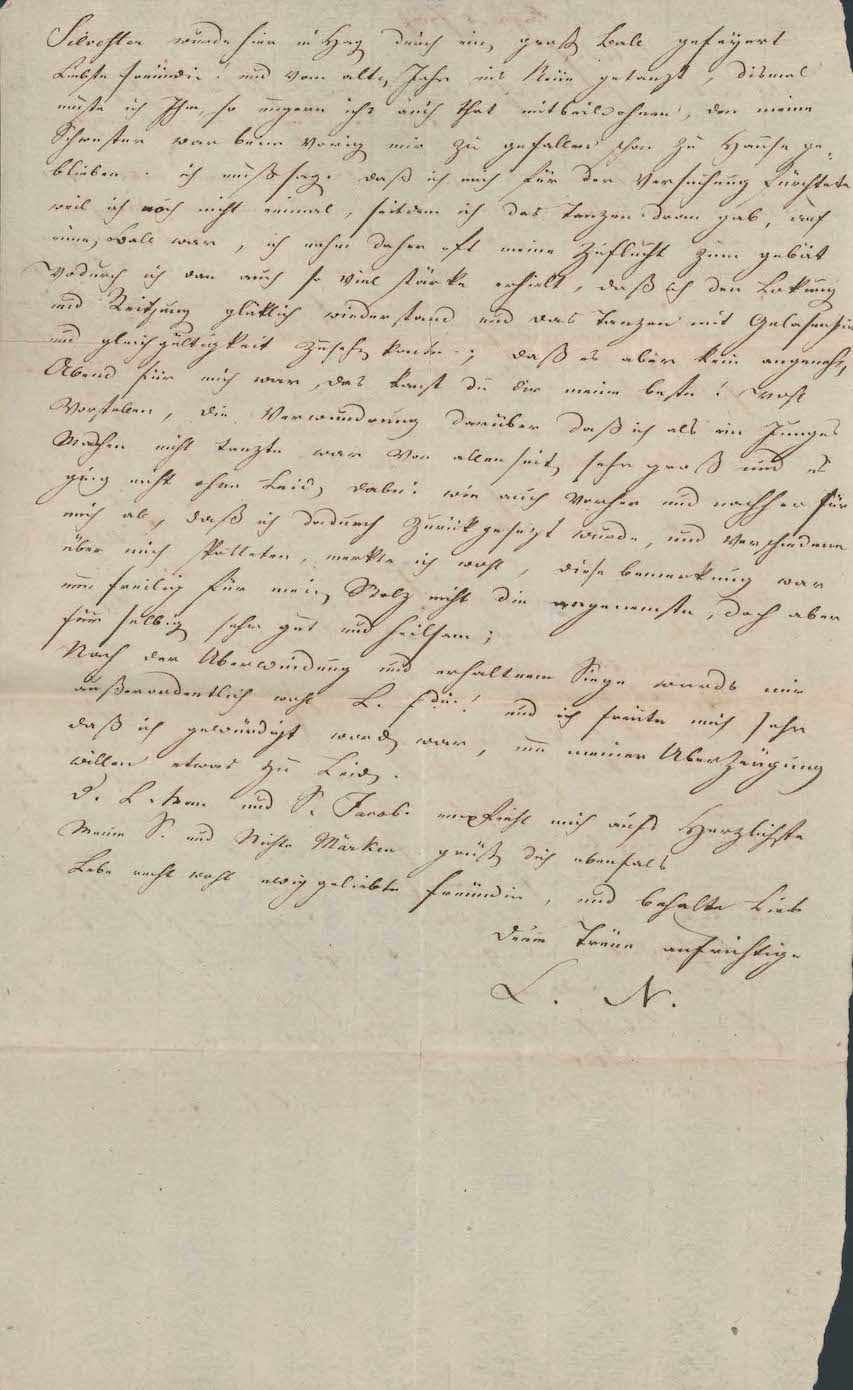 Silvester wurde hier in Hag durch ein groß Ball gefeyert
Liebste Freündin! und vom alten Jahr ins Neüe getanzt, dismal
muste ich Ihm, so ungern ichs auch that mitbeiwohnen, den meine
Schwester war beim Vorig mir zu gefallen schon zu Hause ge-
blieben. ich muß sagen daß ich mich für der Versuchung fürchtete
weil ich noch nicht einmal, seitdem ich das Tanzen dran gab, auf
einen Ball war, ich nahm daher oft meine Zuflucht zum gebät
Wodurch ich dan auch so viel stärke erhielt, daß ich den Lokung
und Reitzung glüklich wiederstand und das Tanzen mit Gelasenheit
und gleichgültigkeit zusehen konte; daß es aber kein angenehm
Abend für mich war, das kanst du dir meine beste! wohl
Vorstellen, die Verwundrung darüber daß ich als ein Junges
Mädchen nicht tanzte war von allen seiten sehr groß und es
ging nicht ohne Leiden dabei wie auch vorher und nachher für
mich ab, daß ich dadurch zurükgesezt wurde, und verschiedene
über mich spotteten, merkte ich wohl, diese bemerkung war
nun freilig für mein Stolz nicht die angenemste, doch aber
für selbig sehr gut und heilsam;
Nach der Uberwindung und erhaltnem Siege wurde mir
außerordentlich wohl L. Fdin! und ich freute mich sehr
daß ich gewürdigt word war, um meiner Uberzeugung
willen etwas zu Leiden.
D. L. und S. Jacob. empfiehl mich aufs Herzlichste
Meine S. und Nichte Märken grüßen dich ebenfals
Lebe recht wohl ewig geliebte Freündin, und behalte Lieb
Deine Treüe aufrichtige
L. N.